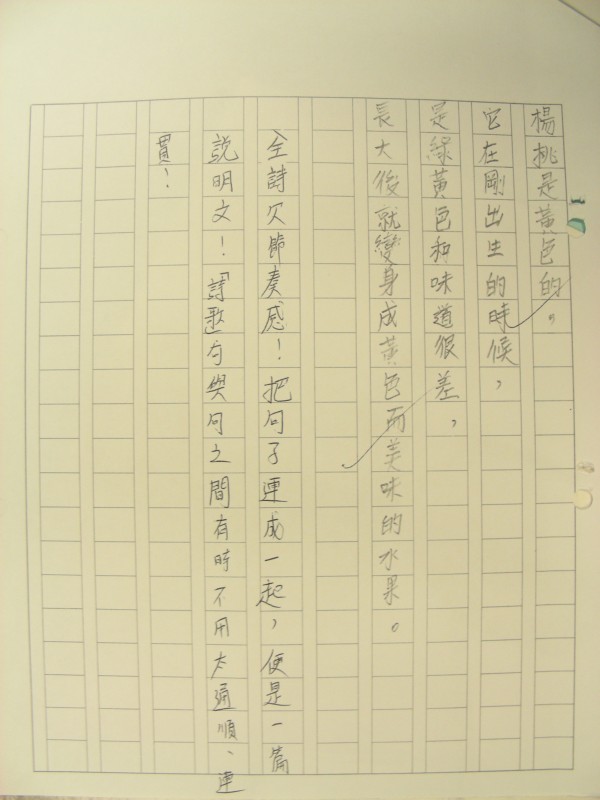 楊桃是黃色的。
它在剛出生的時候，
是綠黃色和味道很差，
長大後就變身成黃色而美味的水果。
全詩欠節奏感！把句子連成一起，便是一篇
說明文！「詩歌」句與句之間有時不用太通順、連
貫！